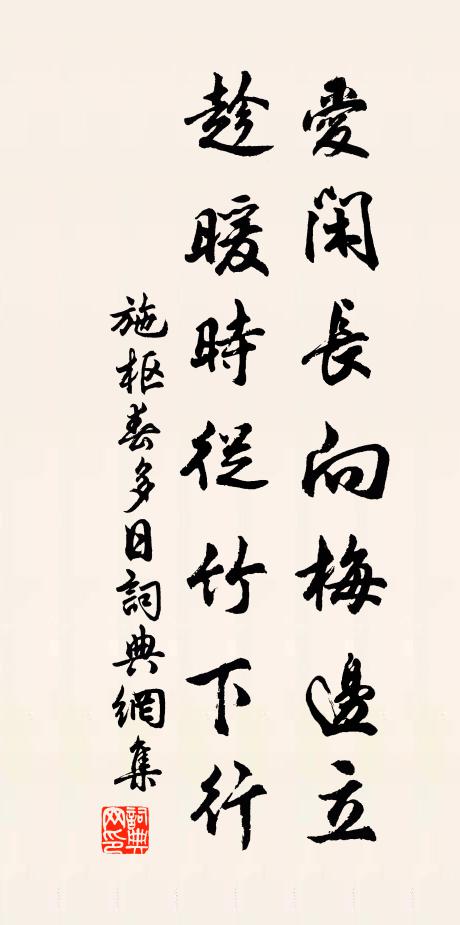 愛閑長向梅邊立
趁暖時從竹下行
施枢春多日詞典網集
詞典网印